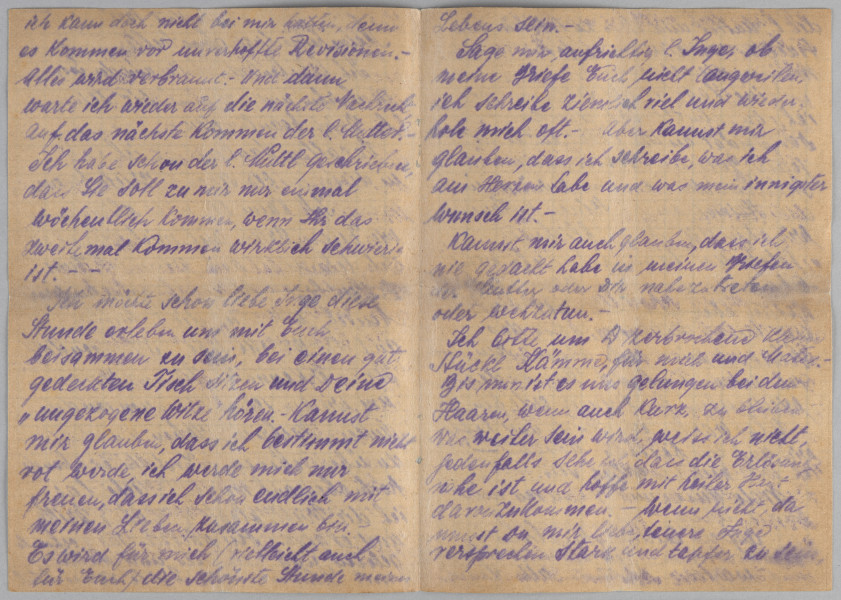 ich kann doch nicht bei mir halten, denn
es kommen vor unverhoffte Revisionen.-
Alles wird verbrannt.- Und dann
warte ich wieder auf die nächste Nachricht
auf das nächste kommen der l. Mutter.-
Ich habe schon der l. Muttl geschrieben,
dass Sie soll zu mir nur einmal
wöchentlich kommen, wenn Ihr das
zweite mal kommen wirklich schwierig
ist. - -
Ich möchte schon liebe Inge diese
Stunde erleben um mit Euch
beisammen zu sein, bei einen gut
gedeckten Tisch sitzen und Deine
„ungezogene Witze hören.- Kannst
mir glauben, dass ich bestimmt nicht
rot werde, ich werde mich nur
freuen, dass ich schon endlich mit
meinen Lieben zusammen bin.
Es wird für mich (vielleicht auch
für Euch) die schönste Stunde meines
Lebens sein.-
Sage mir, aufrichtig l. Inge, ob
meine Briefe Euch nicht langweilen,
ich schreibe ziemlich viel und wieder-
hole mich oft.- Aber kannst mir
glauben, dass ich schreibe, was ich
am Herzen habe und was mein innigster
Wunsch ist.-
Kannst mir auch glauben, dass ich
nie gedacht habe in meinen Briefen
Mutter oder Dir nahezutreten
oder
Ich bitte um zerbrochene
Stückl Kämme, für mich und
Bis nun ist es uns gelungen bei den
Haaren, wenn auch kurz zu bleiben
was weiter sein wird, weiss ich nicht,
jedenfalls sehe ich dass die Erlösung
nahe ist und hoffe mit heiler Haut
davonzukommen. - Wenn nicht da
musst Du mir liebe, teuere Inge
versprechen stark und tapfer zu sein,